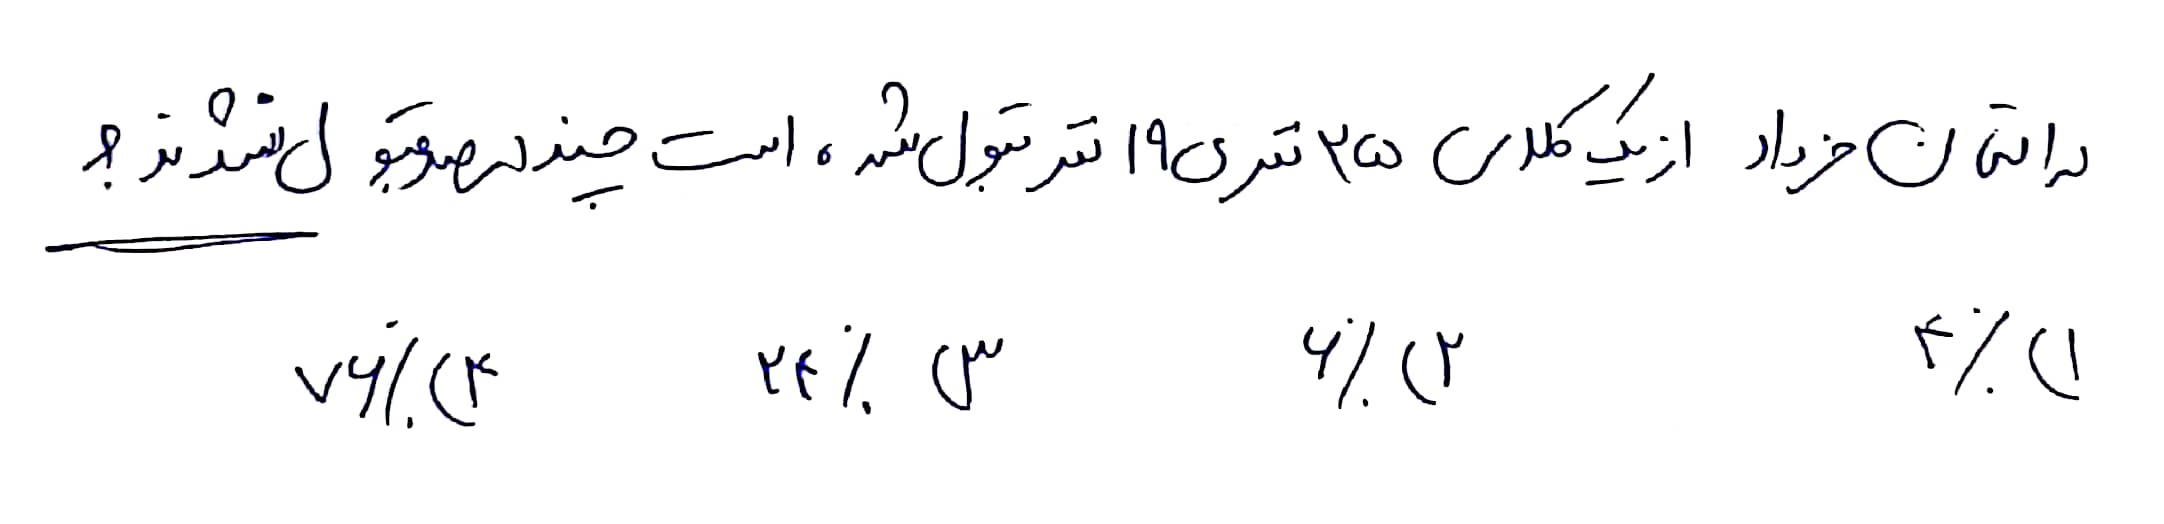 در امتحان خرداد از یک کلاس ۲۵ نفری ۱۹ نفر قبول شده است چند درصد قبول نشدند؟
۱) ٪۴ ۲) ٪۶ ۳) ٪۲۴ ۴) ٪۷۶